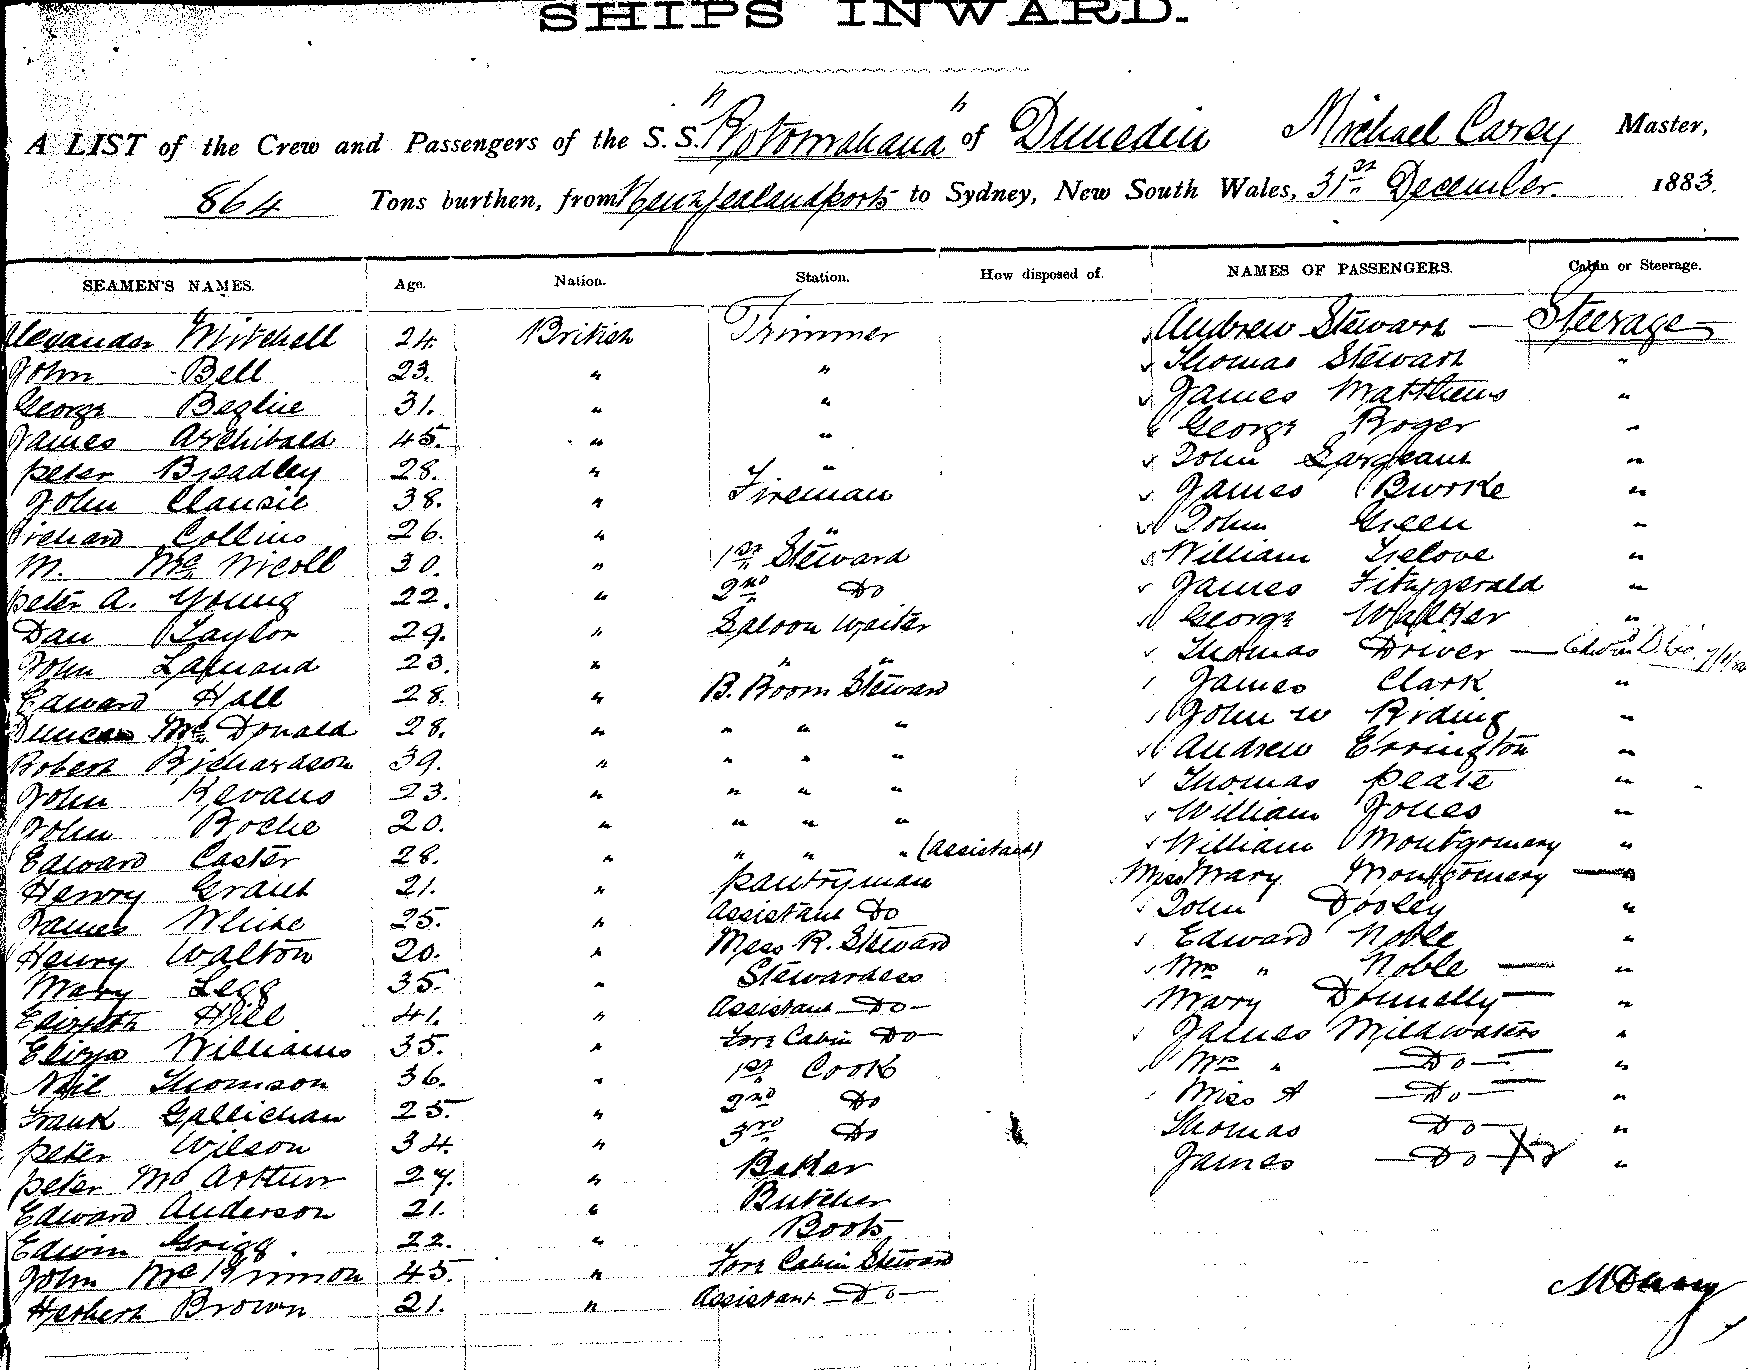 SHIPS INWARD.
A LIST of the Crew and Passengers of the S.S. "Rotomahana" of Dunedin Michael Carey Master,
864 Tons burthen, from New Zealand ports to Sydney, New South Wales, 31st December. 1883.
SEAMEN'S NAMES. Age. Nation. Station. How disposed of. NAMES OF PASSENGERS. Cabin or Steerage.
Alexander Mitchell 24. British Trimmer Andrew Stewart — Steerage
John Bell 23. " " Thomas Stewart "
George Begbie 31. " " James Matthews "
James Archibald 45. " " George Roger "
Peter Breadley 28. " " John Sargeant "
John Clausie 38. " Fireman James Burke "
Richard Collins 26. " " John Green "
M. McNicoll 30. " 1st Steward William "
Peter A. Young 22. " 2nd Do James Fitzgerald "
Dan Taylor 29. " Saloon Waiter George Walker "
John 23. " " " Thomas Driver —
Edward Hall 28. " B. Room Steward James Clark "
Duncan McDonald 28. " " " " John W Riding "
Robert Richardson 39. " " " " Andrew Errington "
John Kevans 23. " " " " Thomas Peate "
John Roche 20. " " " " William Jones "
Edward Caster 28. " " " " (Assistant) William Montgomery "
Henry Grant 21. " Pantryman Miss Mary Montgomery — "
James White 25. " Assistant Do John Dooley "
Henry Walton 20. " Mess R. Steward Edward Noble "
Mary Legg 35. " Stewardess Mrs " Noble — "
Elizabeth Hill 41. " Assistant Do — Mary Donnelly — "
Eliza Williams 35. " Fore Cabin Do — James Mildwaters "
Neil Thomson 36. " 1st Cook Mrs " Do — "
Frank Gallichan 25. " 2nd Do Miss A Do — "
Peter Wilson 34. " 3rd Do Thomas Do — "
Peter McArthur 27. " Baker James Do — "
Edward Anderson 21. " Butcher
Edwin Grigg. 22. " Boots
John McKinnon 45. " Fore Cabin Steward
Herbert Brown 21. " Assistant Do —